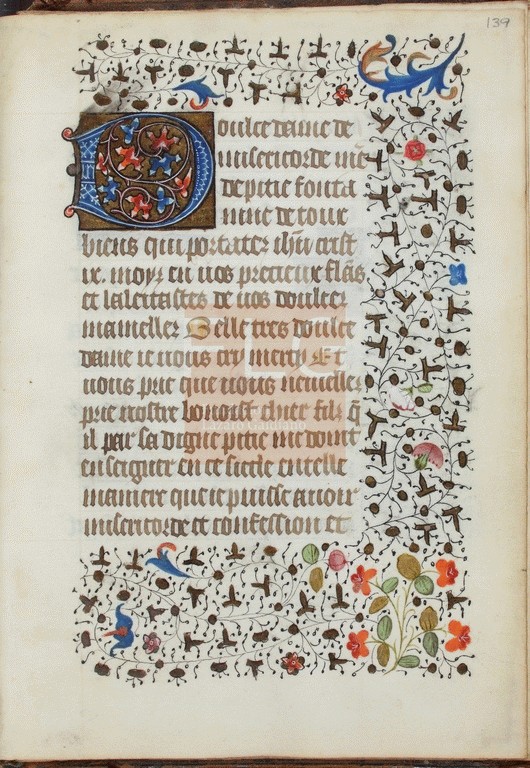 139
Doulce dame de
misericorde me
de pitie fonta
nine de touz
biens qui portates ihu crist
ix. moys en vos precieux flans
et lalaitastes de vos doulces
mamelles Belle tres doulce
dame ie vous cry mercy Et
vous prie que vous vueilles
prie vostre benoist chier filz q̃
il par sa digne pitie me doint
enseigner en ce siecle en telle
maniere que ie puisse auoir
misericorde et confession et
FLG
Lázaro Galdiano